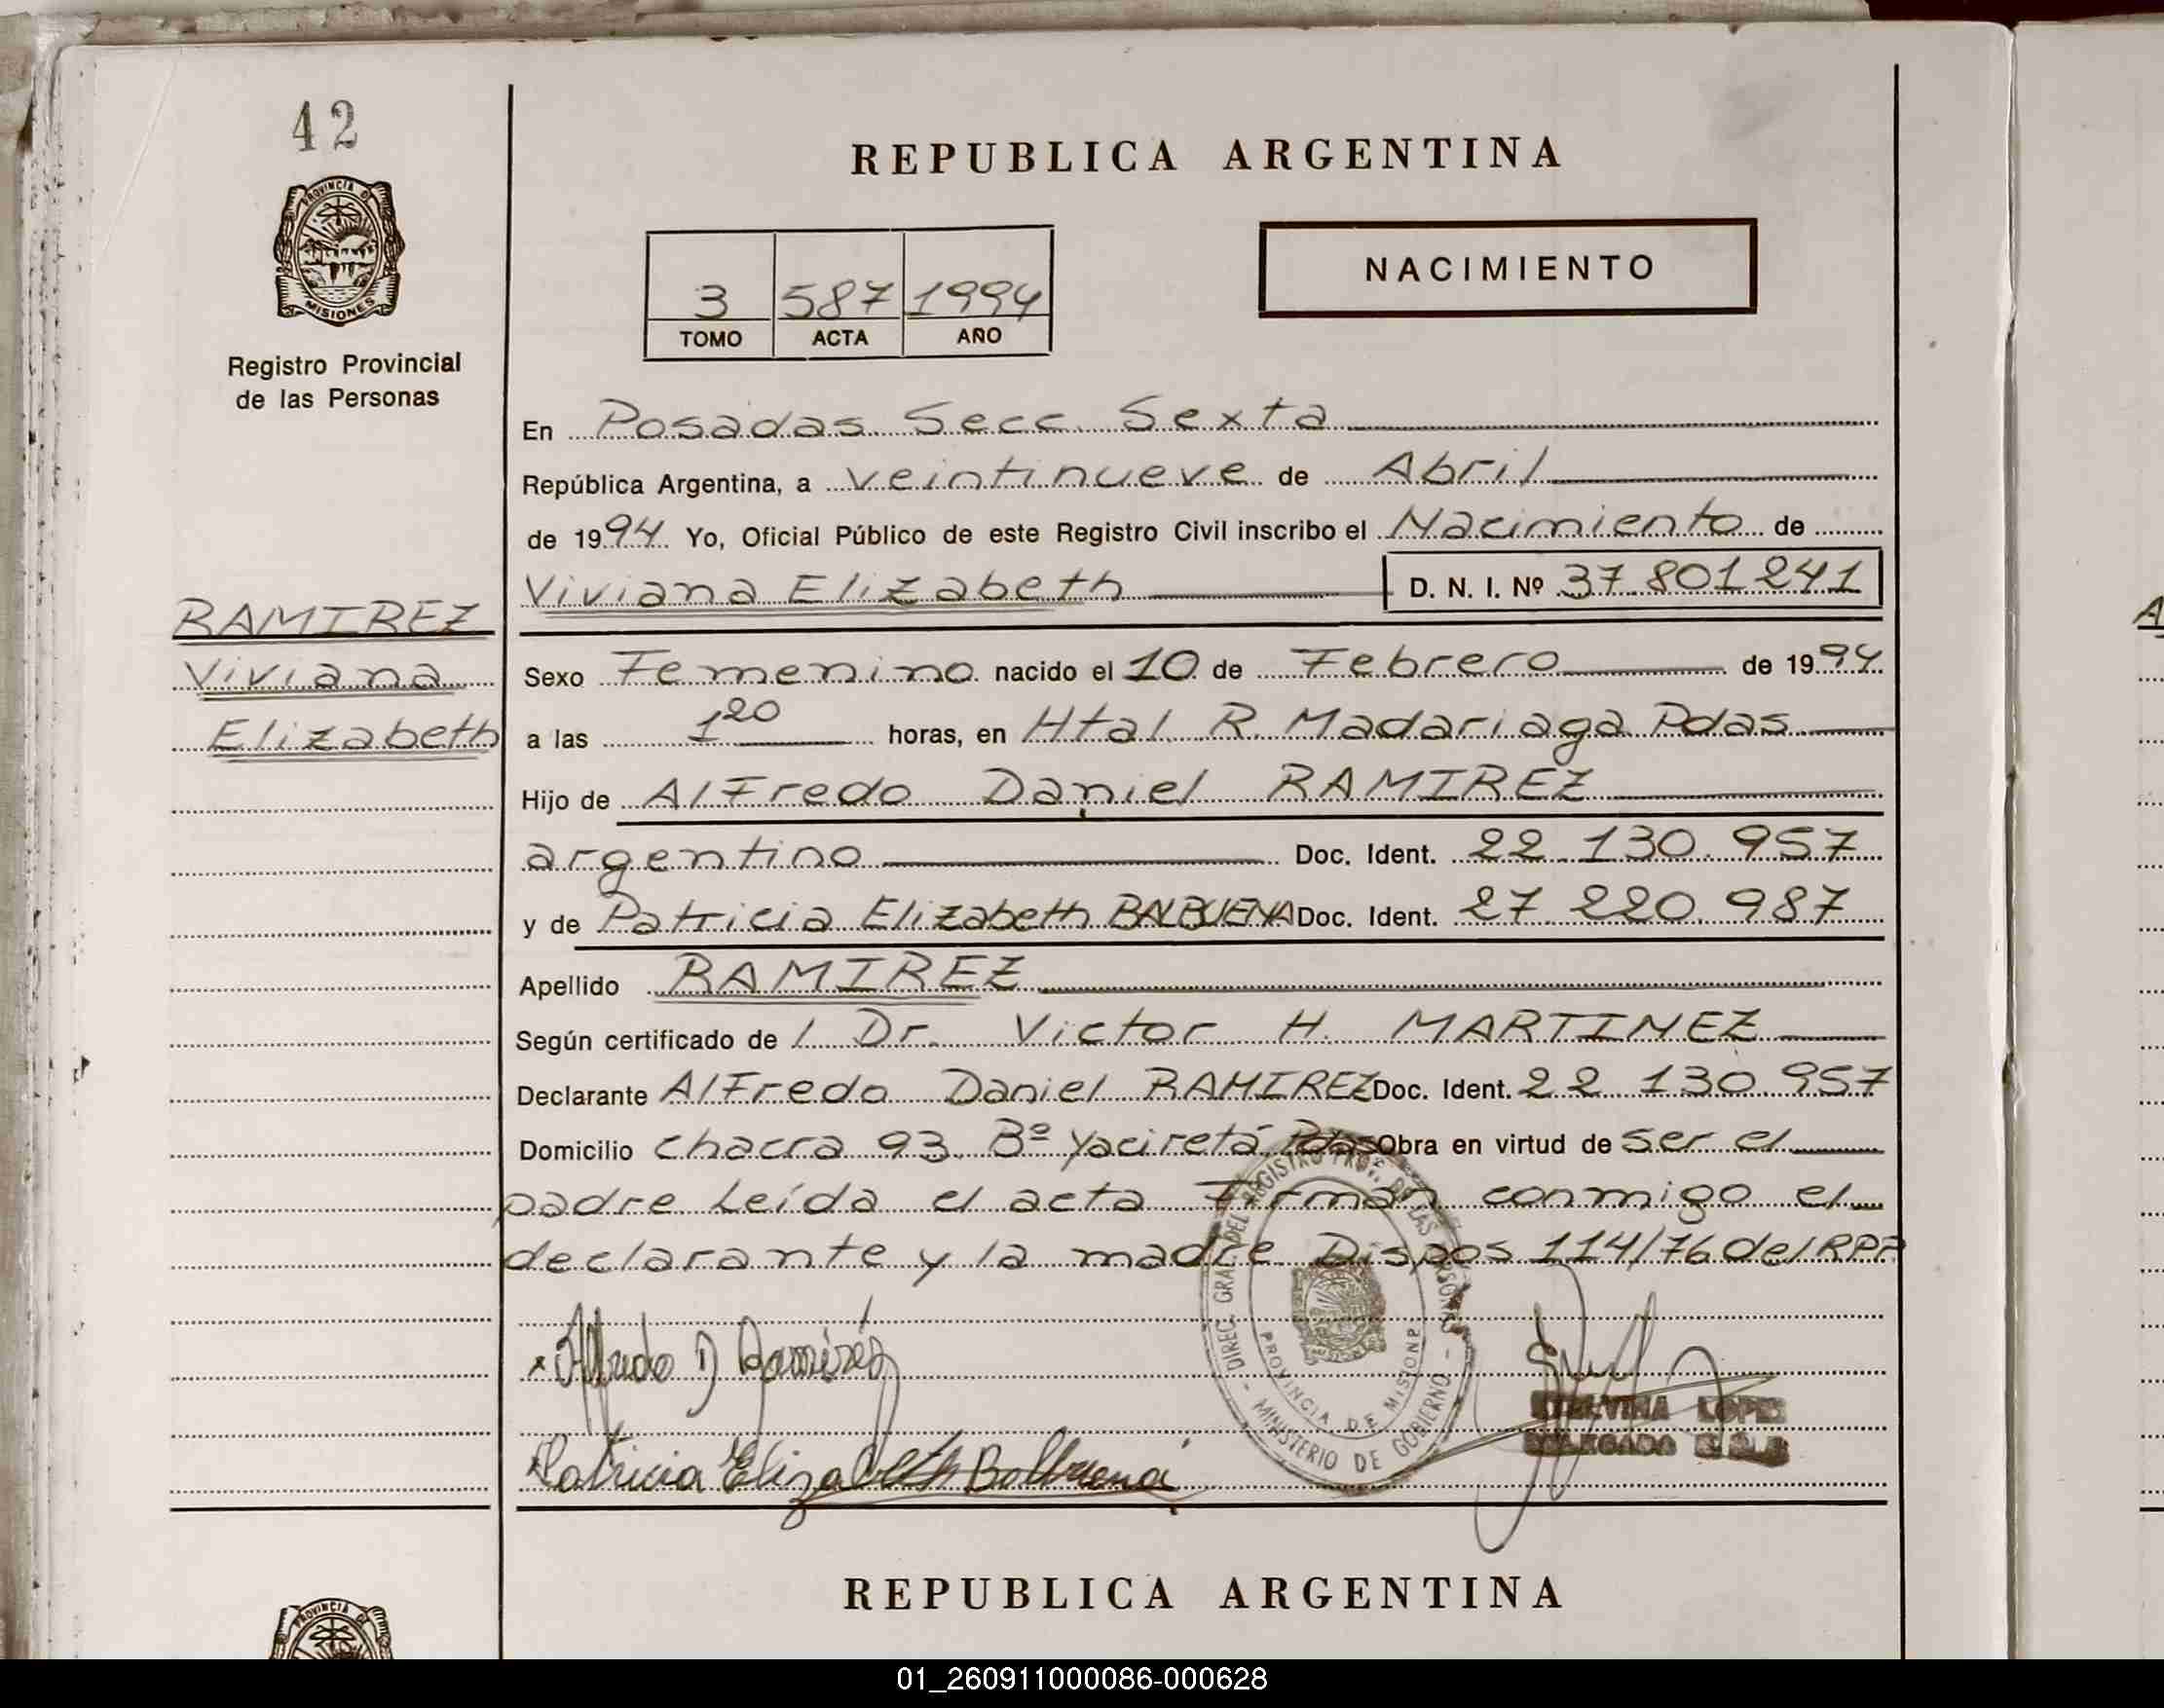 42
PROVINCIA DE
MISIONES
Registro Provincial
de las Personas
REPUBLICA ARGENTINA
NACIMIENTO
3 587 1994
TOMO ACTA AÑO
En Posadas Secc. Sexta
República Argentina, a veintinueve de Abril
de 1994 Yo, Oficial Público de este Registro Civil inscribo el Nacimiento de
Viviana Elizabeth D. N. I. Nº 37.801241
RAMIREZ
Viviana
Elizabeth
Sexo Femenino nacido el 10 de Febrero de 1994
a las 1 20 horas, en Htal R. Madariaga Pdas
Hijo de Alfredo Daniel RAMIREZ
argentino Doc. Ident. 22.130.957
y de Patricia Elizabeth BALBUENA Doc. Ident. 27.220.987
Apellido RAMIREZ
Según certificado de l Dr. Victor H. MARTINEZ
Declarante Alfredo Daniel RAMIREZ Doc. Ident. 22 130.957
Domicilio chacra 93. Bº Yaciretá Pdas Obra en virtud de ser el
padre Leída el acta Firman conmigo el
declarante y la madre. Dispos. 114/76 del RPP
DIREC. GRAL. DEL REGISTRO PROV. DE LAS PERSONAS - MINISTERIO DE GOBIERNO -
PROVINCIA DE MISIONES
Alfredo D Ramirez
Patricia Elizabeth Balbuena
LOPES
REPUBLICA ARGENTINA
PROVINCIA
01_260911000086-000628